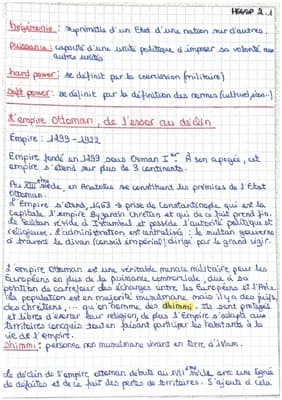 HGGSP 2.1
Hégémonie : suprématie d'un Etat d'une nation sur d'autres.
Puissance : capacité d'une unité politique d'imposer sa volonté aux
autres unités
hard power : se définit par la coercition (militaire)
soft power : se définit par la définition des normes (culturel,
L'empire Ottoman, de l'essor au déclin
Empire : 1299 - 1922
Empire fondé en 1299 sous Osman Ier. À son apogée, cet
empire s'étend sur plus de 3 continents.
Au XIIIème siècle, en Anatolie se constituent les prémices de l'Etat
Ottoman.
L'Empire s'étend, 1453 → prise de Constantinople qui est la
capitale l'empire Byzantin Chrétien et qui de ce fait prend fin.
Le Sultan réside à Istanbul et possède l'autorité politique et
religieuse, l'administration est centralisée : le sultan gouverne
à travers le divan (conseil impérial) dirigé par le grand vizir.
L'empire Ottoman est une véritable menace militaire pour les
Européens en plus de la puissance commerciale, due à sa
position de carrefour des échanges entre les Européens et l'Asie.
La population est en majorité musulmane mais il y a des juifs,
des chrétiens, ... qu'on nomme des dhimmi. Ils sont protégés
et libres d'exercer leur religion, de plus l'Empire s'adapte aux
territoires conquis tout en faisant participer les habitants à la
vie de l'empire.
Dhimmi : personne non musulmane vivant en terre d'Islam.
Le déclin de l'empire ottoman débute au XVIIème siècle avec une lignée
de défaites et de ce fait des pertes de territoires. S'ajoute à cela